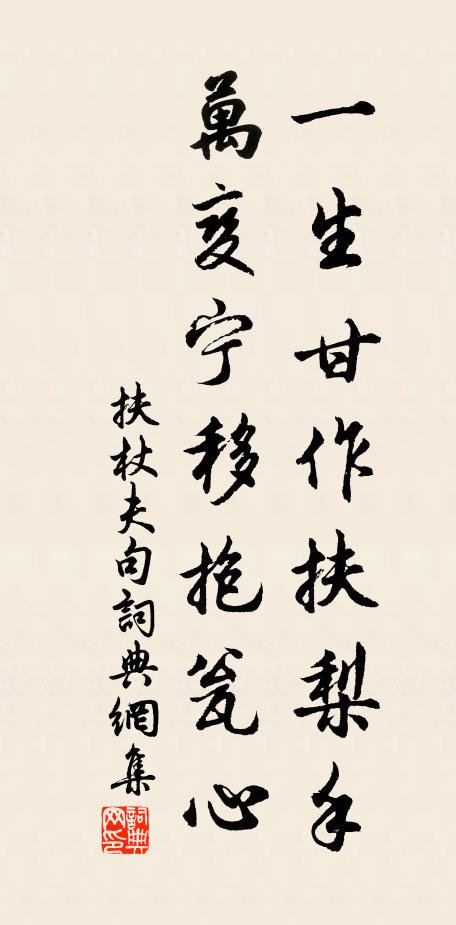 一生甘作扶梨手
萬变宁移抱瓮心
扶杖夫句詞典網集
詞典网印